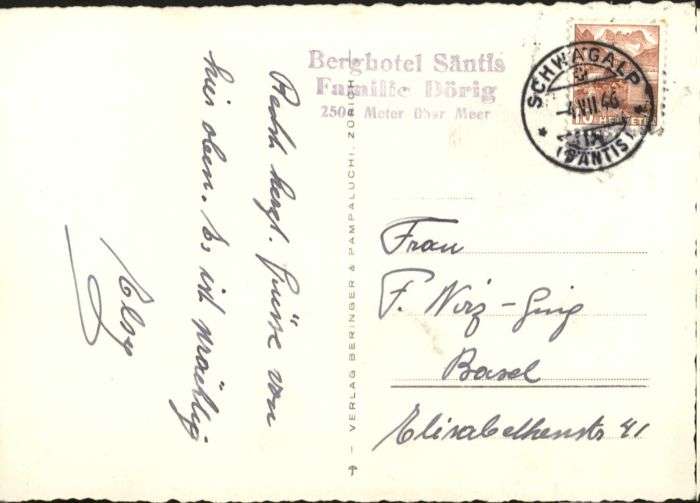 Recht herzl. Grüsse von
hier oben. Es ist prächtig
Berghotel Säntis
Familie Dörig
2504 Meter über Meer
SCHWÄGALP
(SÄNTIS)
HELVETIA
— VERLAG BERINGER & PAMPALUCHI, ZÜRICH
Frau
F. Nirz-
Basel
Elisabethenstr 41